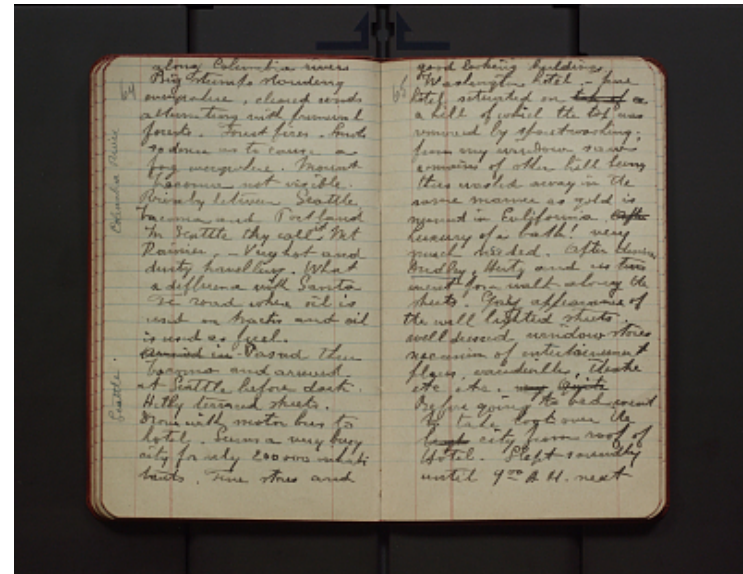 64
along Columbia river
Big stumps standing
everywhere, cleared roads
alternating with primeval
forests. Forest fires. Smoke
so dense as to cause a
fog everywhere. Mount
Tacoma not visible.
Rivalry between Seattle
Tacoma and Portland
In Seattle they call it Mt
Rainier. – Very hot and
dusty travelling. What
a difference with Santa
Fe road where oil is
used on tracks and oil
is used as fuel.
arrived in Passed thru
Tacoma and arrived
at Seattle before dark.
Hilly terraced streets.
Drove with motor bus to
hotel. Seems a very busy
city for only 200000 inhabi
tants. Fine stores and
Columbia River
Seattle.
65
good looking buildings
Washington hotel – fine
hotel situated on top of a
a hill of which the top was
removed by sluicewashing;
from my window saw
remains of other hill being
thus washed away in the
same manner as gold is
mined in California. After
Luxury of a bath! very
much needed. After dinner
Dudley, Hertz and us two
went for a walk along the
streets. Gay appearance of
the well lighted streets.
well dressed window stores
succession of entertainment
places, vaudeville, theatre
etc. etc.
Before going to bed went
to take look over the
city from roof of
Hotel. Slept soundly
until 9 00 A.M. next